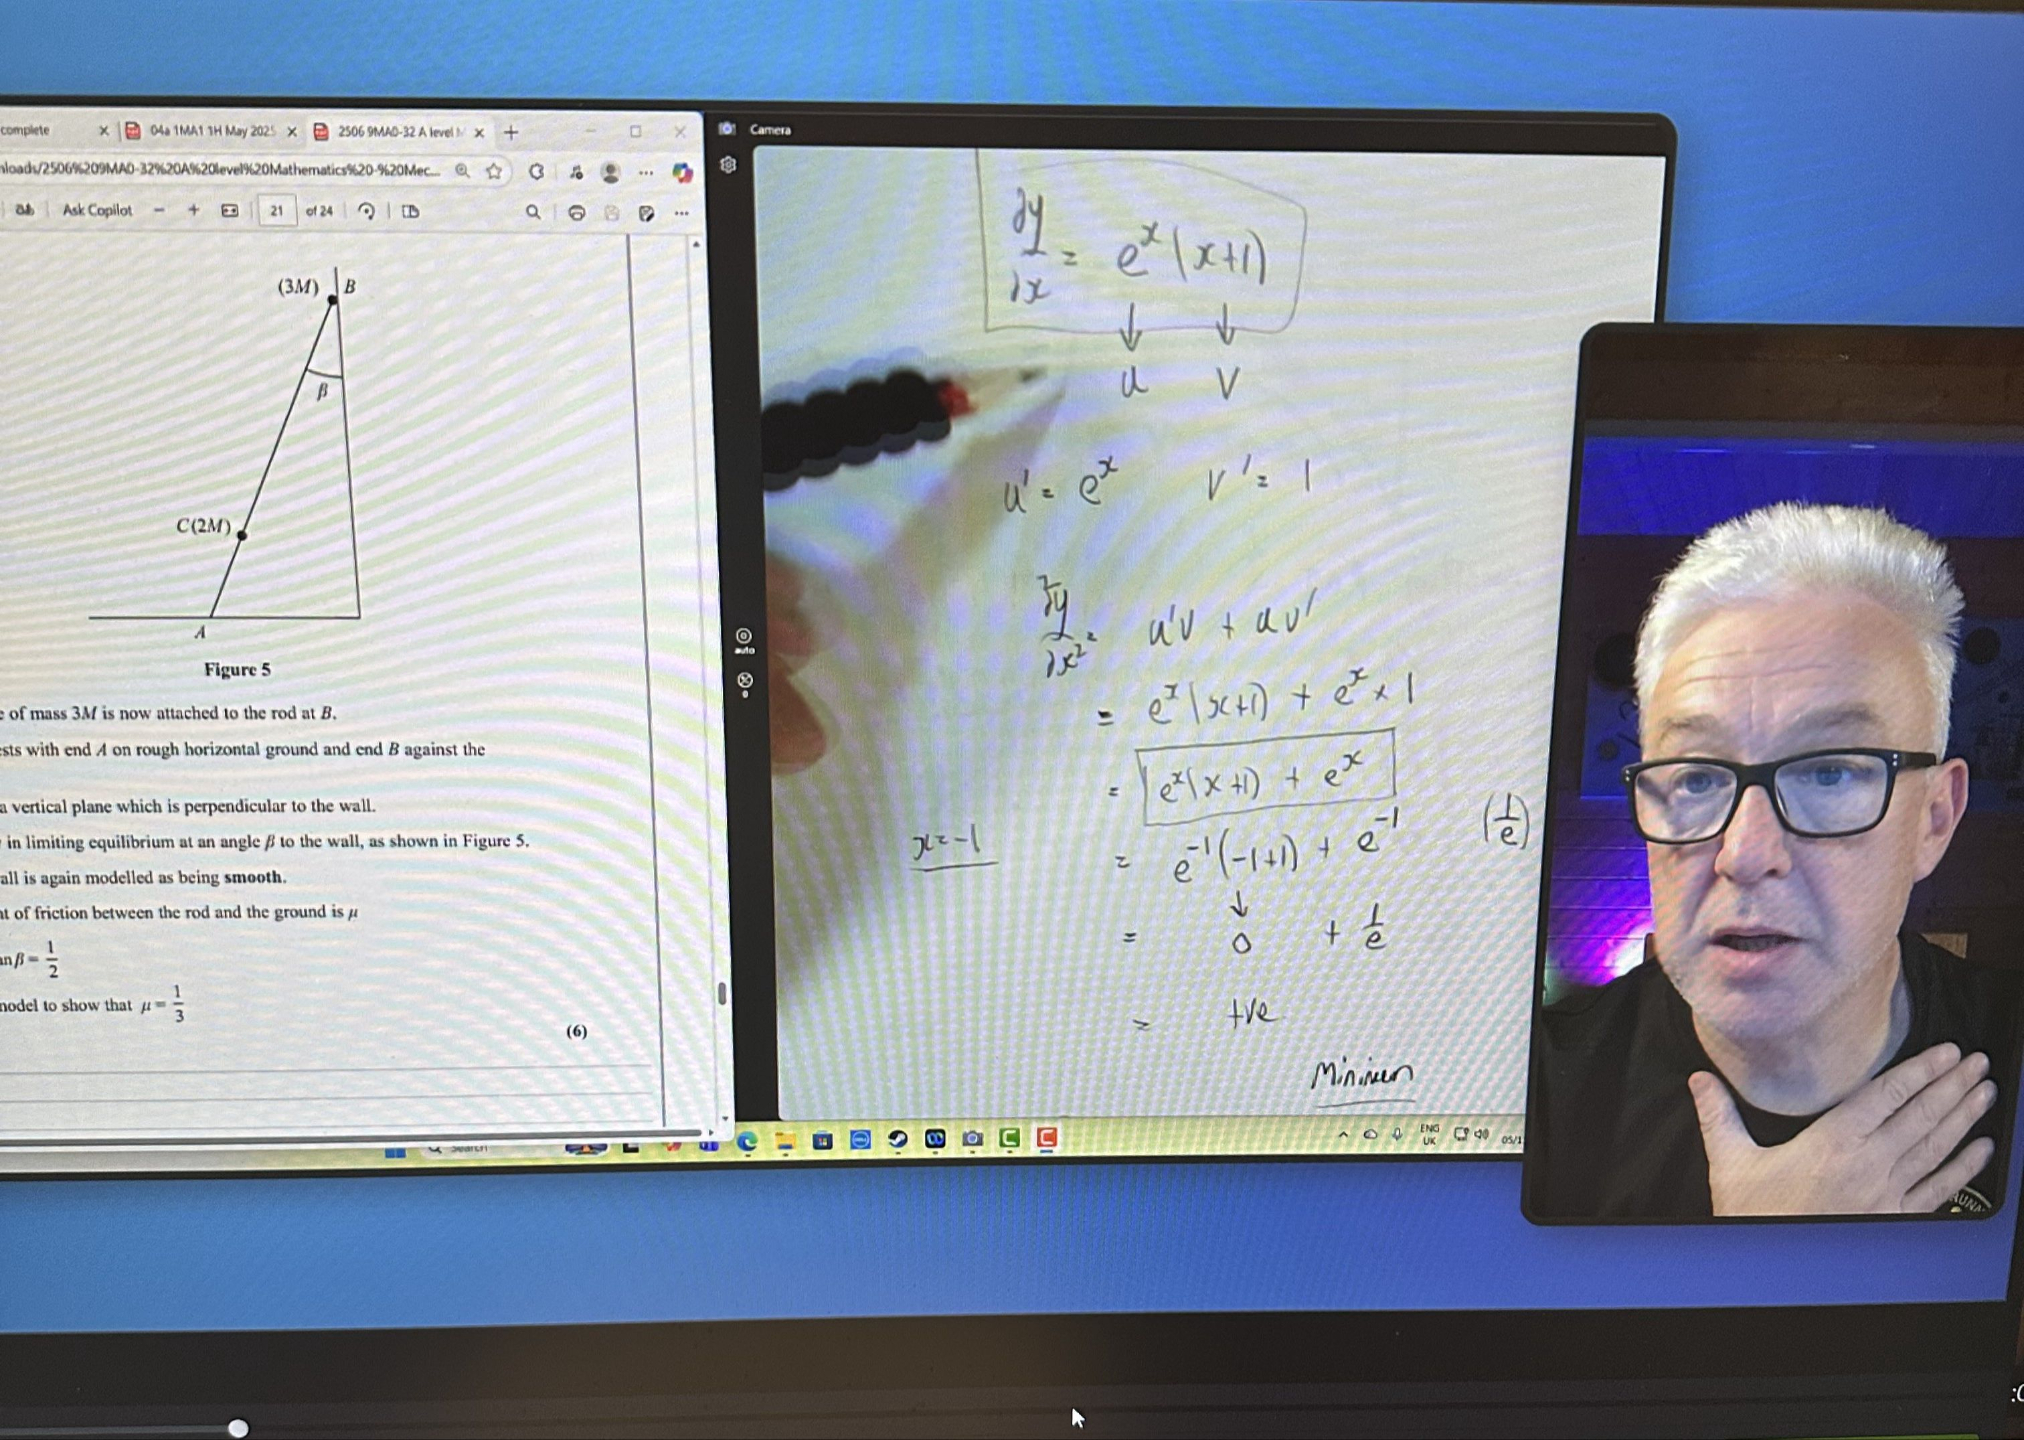 complete
04a 1MA1 1H May 2025
2506 9MA0-32 A level
nloads/2506%209MA0-32%20A%20level%20Mathematics%20-%20Mec...
Ask Copilot
21
of 24
(3M) B
β
C(2M)
A
Figure 5
of mass 3M is now attached to the rod at B.
sts with end A on rough horizontal ground and end B against the
a vertical plane which is perpendicular to the wall.
in limiting equilibrium at an angle β to the wall, as shown in Figure 5.
all is again modelled as being smooth.
t of friction between the rod and the ground is μ
anβ = 1/2
model to show that μ = 1/3
(6)
Camera
auto
dy/dx = eˣ(x+1)
↓ ↓
u v
u' = eˣ v' = 1
d²y/dx² = u'v + uv'
= eˣ(x+1) + eˣ × 1
= eˣ(x+1) + eˣ
x = -1
= e⁻¹(-1+1) + e⁻¹ (1/e)
↓
= 0 + 1/e
= +ve
Minimum
Search
ENG
UK
05/1
AUNA